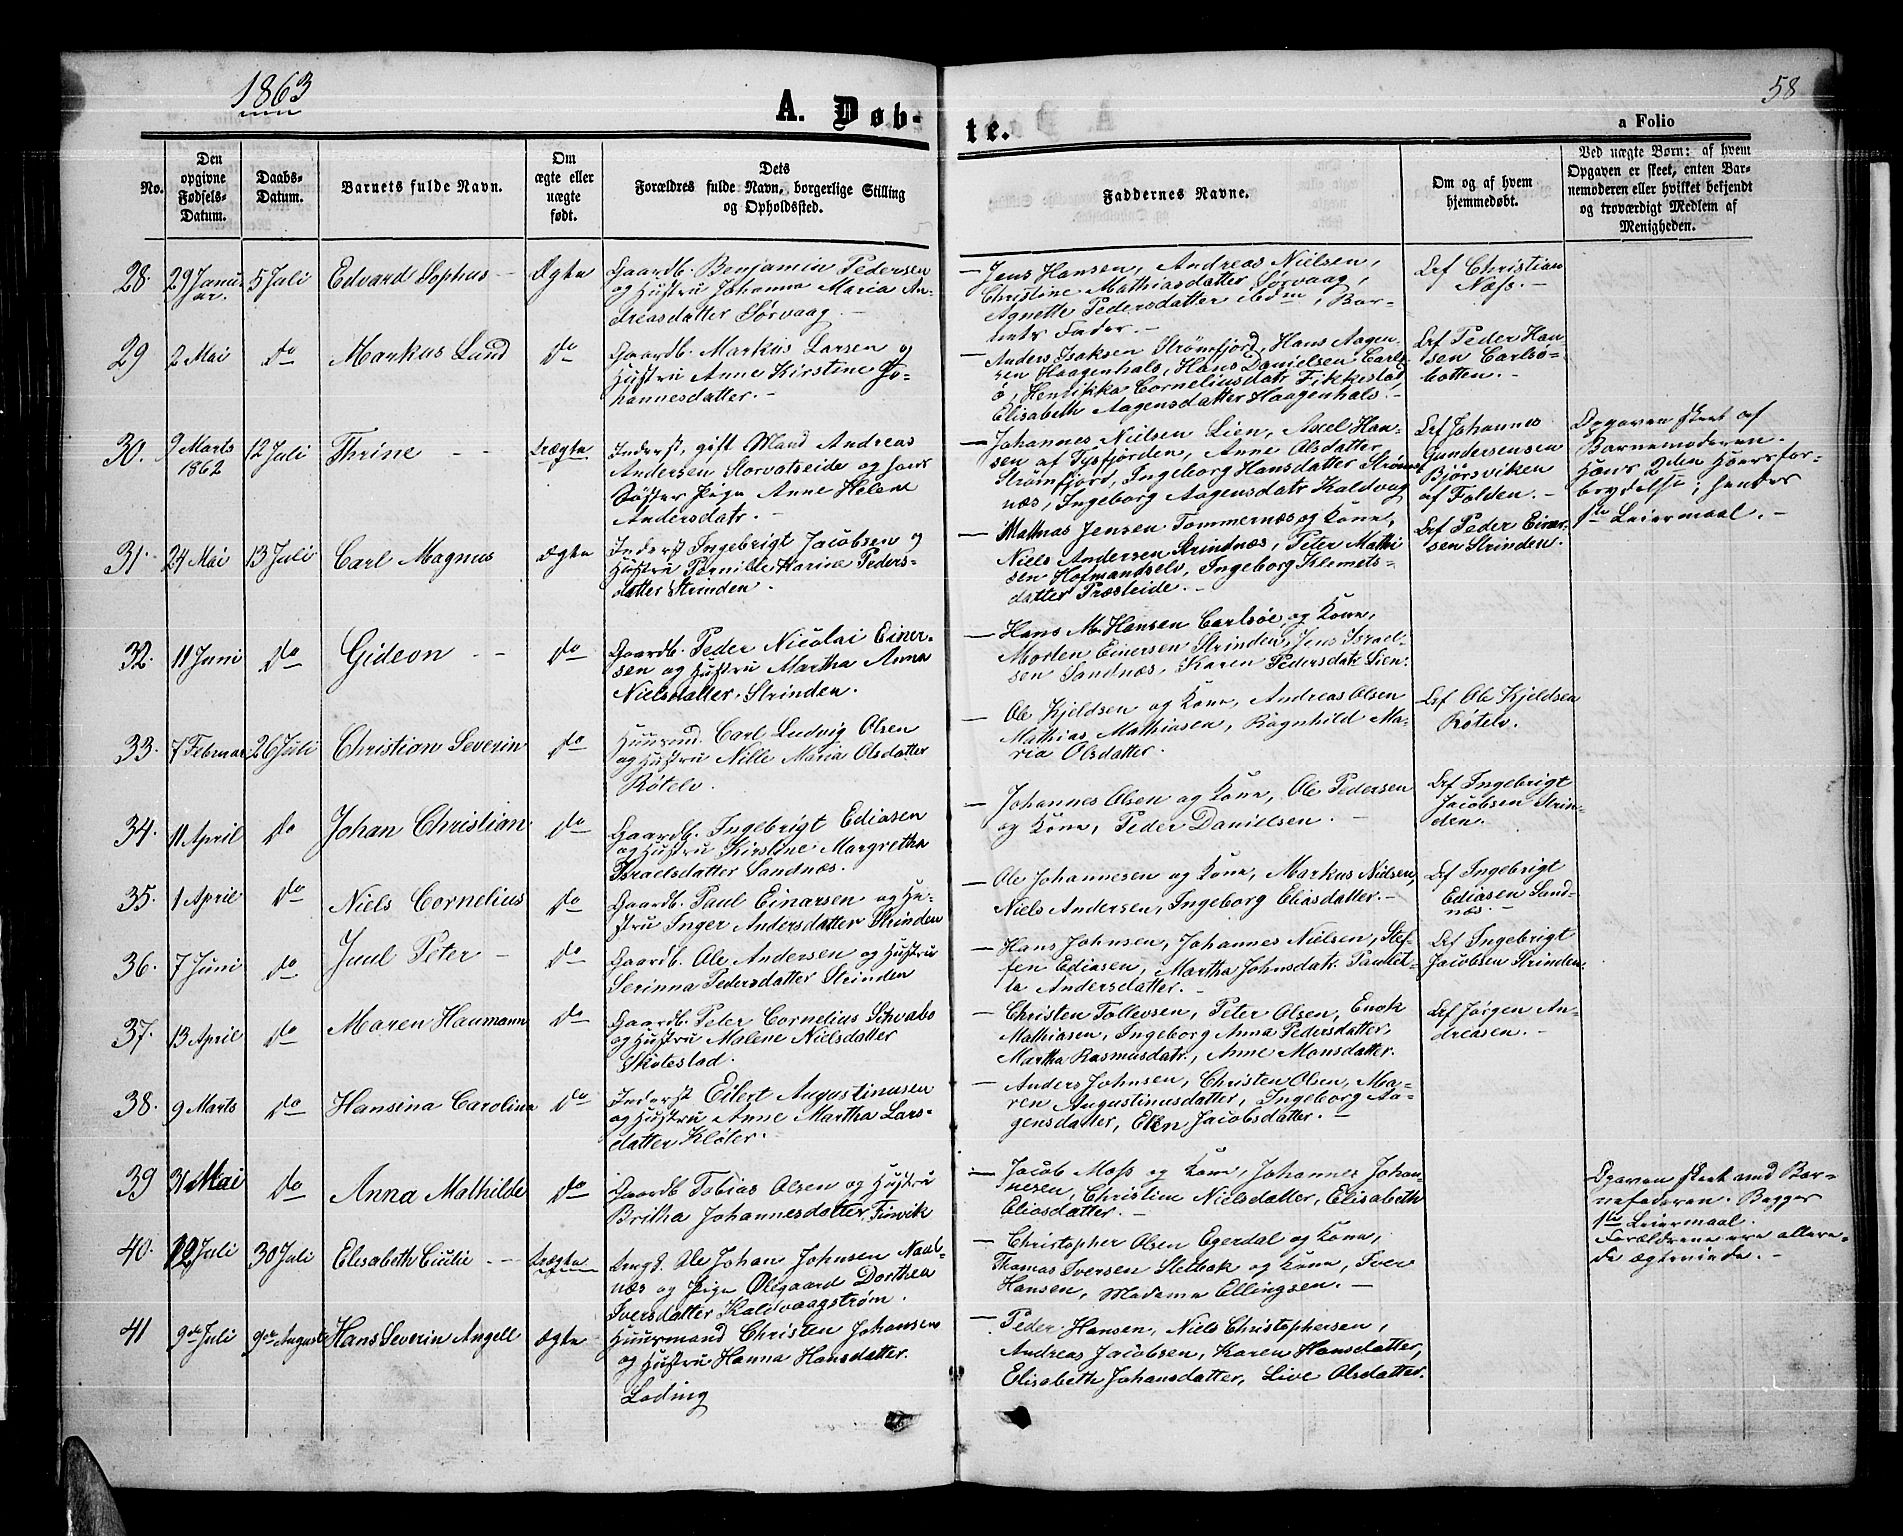 1863
58
A. Døb-
te.
a Folio
No.
Den
opgivne
Fødsels-
Datum.
Daabs-
Datum.
Barnets fulde Navn.
Om
ægte eller
uægte
født.
Dets
Forældres fulde Navn, borgerlige Stilling
og Opholdssted.
Faddernes Navne.
Om og af hvem
hjemmedøbt.
Ved uægte Børn: af hvem
Opgaven er skeet, enten Bar-
nemoderen eller hvilket bekjendt
og troværdigt Medlem af
Menigheden.
28. 29 Janu-
ar. 5 Juli Edvard Sophus - Ægte
Gaardb. Benjamin Pedersen
og Hustru Johanna Maria An-
dreasdatter Sørvaag. -
- Jens Hansen, Andreas Nielsen,
Christine Mathiasdatter Sørvaag,
Agnette Pedersdatter ibdm, Bar-
nets Fader. -
Def Christian
Næss. -
29 2 Mai do Markus Lund do
Gaardb. Markus Larsen og
Hustru Anne Kirstine Jo-
hannesdatter. -
- Anders Isaksen Strømfjord, Hans Aagen-
sen Haagenhals, Hans Danielsen Carls-
ø, Henrikka Corneliusdatr Fikkestad,
Elisabeth Aagensdatter Haagenhals. -
Def Peder Han-
sen Carlsø-
botten. -
30. 9 Marts
1862 12 Juli Thrine - - Uægte
Inderst, gift Mand Andreas
Andersen Storvatseide og hans
Søster Pige Anne Helene
Andersdatr. -
- Johannes Nielsen Lien, Axel Han-
sen af Tysfjorden, Anne Olsdatter
Strømfjord, Ingeborg Hansdatter Strøm-
næs, Ingeborg Aagensdatr Kaldvag
Def Johannes
Gundersensen
Bjørsviken
af Folden. -
Opgaven skeet af
Barnemoderen.
Hans 2den Hoersfor-
brydelse; hendes
1ste Leiermaal. -
31. 24 Mai 13 Juli Carl Magnus Ægte
Inderst Ingebrigt Jacobsen og
Hustru Pernille Marine Peders-
datter Strinden.
- Mathias Jensen Tommernæs og Kone,
Niels Andersen Strindnæs, Peter Mathi-
sen Hofmandselv, Ingeborg Klemets-
datter Præsteide. -
Def Peder Einer-
sen Strinden.
32. 11 Juni do Gideon - - do
Gaardb. Peder Nicolai Einer-
sen og Hustru Martha Anna
Nielsdatter, Strinden.
- Hans M. Hansen Carlsøe og Kone,
Morten Einersen Strinden, Jens Israel-
sen Sandnæs, Karen Pedersdatr Lien.
33. 7 Februar 26 Juli Christian Severin do
Huusmd. Carl Ludvig Olsen
og Hustru Nille Maria Olsdatter
Røtelv.
- Ole Kjeldsen og Kone, Andreas Olsen
Mathias Mathiasen, Ragnhild Ma-
ria Olsdatter.
Def Ole Kjeldsen
Røtelv.
34. 11 April do Johan Christian do
Gaardb. Ingebrigt Ediasen
og Hustru Kirstine Margretha
Israelsdatter Sandnæs.
- Johannes Olsen og Kone, Ole Pedersen
og Kone, Peder Danielsen. -
Def Ingebrigt
Jacobsen Strin-
den.
35. 1 April do Niels Cornelius do
Gaardb. Paul Einarsen og Hu-
stru Inger Andersdatter Strinden
- Ole Johannesen og Kone, Markus Nielsen,
Niels Andersen, Ingeborg Eliasdatter. -
Def Ingebrigt
Ediasen Sand-
næs. -
36. 7 Juni do Juul Peter - do
Gaardb. Ole Andersen og Hustru
Serinna Pedersdatter Strinden
- Hans Johnsen, Johannes Nielsen, Stef-
fen Ediasen, Martha Johnsdatr. Paulet-
te Andersdatter. -
Def Ingebrigt
Jacobsen Strinden.
37. 13 April do Maren Haumann do
Gaardb. Peter Cornelius Schvabo
og Hustru Malene Nielsdatter
Skølestad.
- Christen Tollevsen, Peter Olsen, Enok
Mathiasen, Ingeborg Anna Pedersdatter,
Martha Rasmusdatr., Anne Monsdatter.
Def Jørgen An-
dreasen. -
38. 9 Marts do Hansina Carolina do
Inderst Eilert Augustinusen
og Hustru Anne Martha Lars-
datter Kløter. -
- Anders Johnsen, Christen Olsen, Ma-
ren Augustinusdatter, Ingeborg Aa-
gensdatter, Elen Jacobsdatter. -
39 31 Mai do Anna Mathilde do
Gaardb Tobias Olsen og Hustru
Britha Johannesdatter, Finvik
- Jacob Moss og Kone, Johannes Johan-
nesen, Christine Nielsdatter, Elisabeth
Eliasdatter. -
40. 12 Juli 30 Juli Elisabeth Cicilie - Uægte
Ungd. Ole Johan Johnsen Naal-
næs og Pige Ølegaard Dorthea
Iversdatter Kaldvaagstrøm.
- Christopher Olsen Egerdal og Kone,
Thomas Iversen Stelbak og Kone, Iver
Hansen, Madame Ellingsen. -
Opgaven skeet med Bar-
nefaderen. Begges
1ste Leiermaal.
Forældrene ere allere-
de ægteviede. -
41 9de Juli 9de August Hans Severin Angell Ægte
Huusmand Christen Johansen
og Hustru Hanna Hansdatter.
Løding
- Peder Hansen, Niels Christophersen,
Andreas Jacobsen, Karen Hansdatter,
Elisabeth Johansdatter, Live Olsdatter.